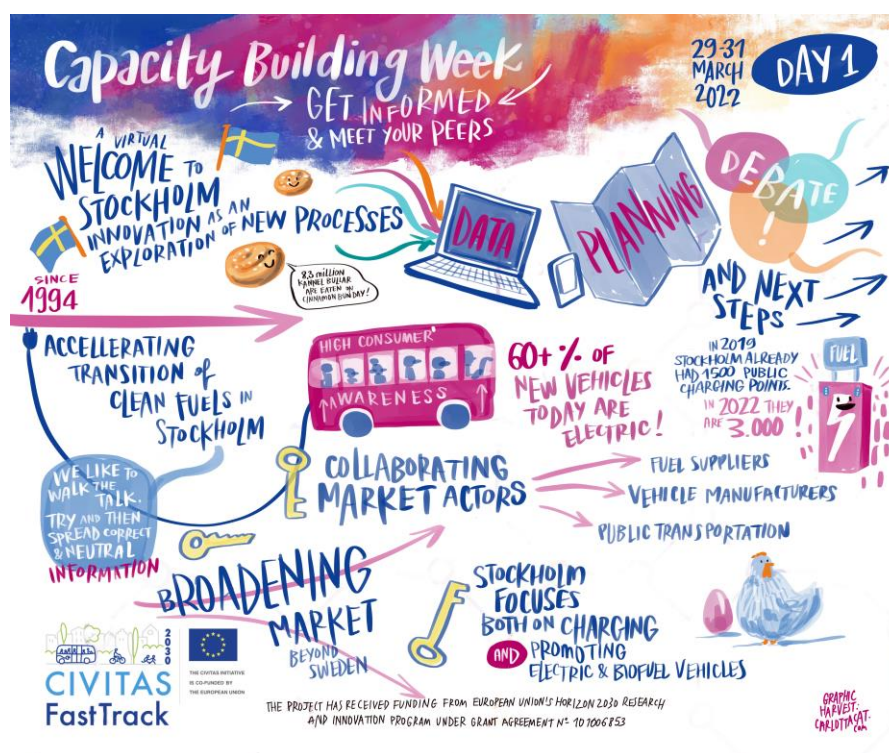 Capacity Building Week
GET INFORMED
& MEET YOUR PEERS
29-31
MARCH
2022
DAY 1
A VIRTUAL
WELCOME TO
STOCKHOLM
INNOVATION AS AN
EXPLORATION OF NEW PROCESSES
8,3 million
KANNEL BULLAR
ARE EATEN ON
CINNAMON BUNDAY!
DATA
PLANNING
DEBATE
!
AND NEXT
STEPS
SINCE
1994
ACCELLERATING
TRANSITION of
CLEAN FUELS IN
STOCKHOLM
HIGH CONSUMER
AWARENESS
60+% OF
NEW VEHICLES
TODAY ARE
ELECTRIC!
IN 2019
STOCKHOLM ALREADY
HAD 1500 PUBLIC
CHARGING POINTS.
IN 2022 THEY
ARE 3.000
FUEL
WE LIKE TO
WALK THE
TALK.
TRY AND THEN
SPREAD CORRECT
& NEUTRAL
INFORMATION
COLLABORATING
MARKET ACTORS
FUEL SUPPLIERS
VEHICLE MANUFACTURERS
PUBLIC TRANSPORTATION
BROADENING
MARKET
BEYOND
SWEDEN
STOCKHOLM
FOCUSES
BOTH ON CHARGING
AND PROMOTING
ELECTRIC & BIOFUEL VEHICLES
2030
CIVITAS
FastTrack
THE CIVITAS INITIATIVE
IS CO-FUNDED BY
THE EUROPEAN UNION
THE PROJECT HAS RECEIVED FUNDING FROM EUROPEAN UNION'S HORIZON 2030 RESEARCH
AND INNOVATION PROGRAM UNDER GRANT AGREEMENT Nº 101006853
GRAPHIC
HARVEST:
CARLOTTACAT.
com